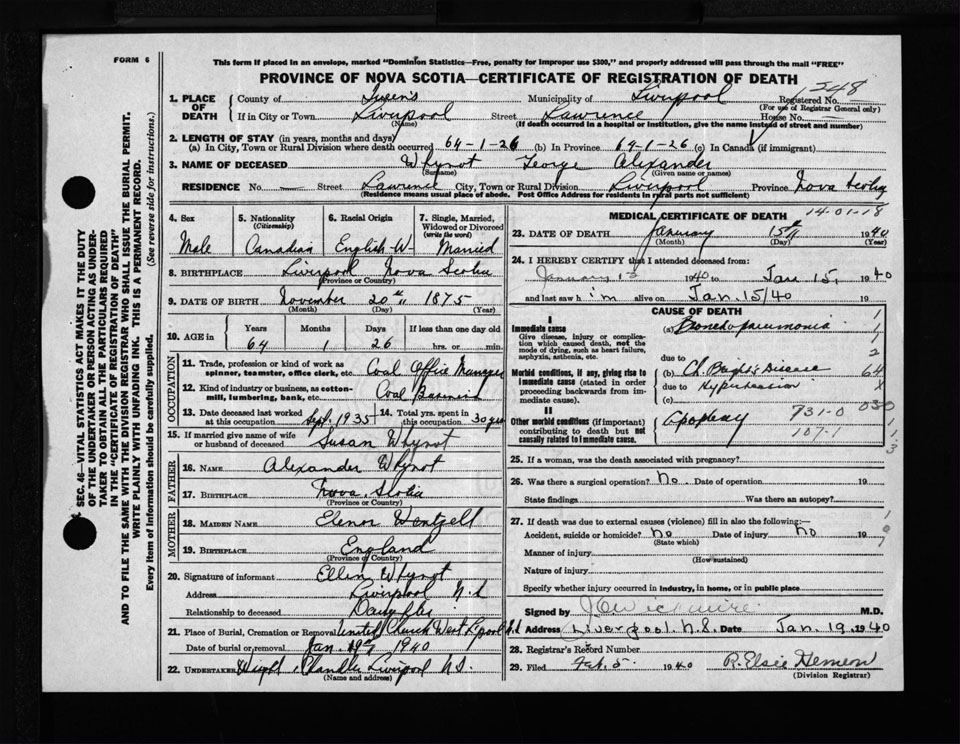 FORM 6
This form if placed in an envelope, marked "Dominion Statistics—Free, penalty for improper use $300," and properly addressed will pass through the mail "FREE"
PROVINCE OF NOVA SCOTIA—CERTIFICATE OF REGISTRATION OF DEATH
1. PLACE OF DEATH County of Queen's Municipality of Liverpool Registered No. 1348
(For use of Registrar General only)
If in City or Town Liverpool Street Lawrence House No.
(Name) (If death occurred in a hospital or institution, give the name instead of street and number)
2. LENGTH OF STAY (in years, months and days)
(a) In City, Town or Rural Division where death occurred 64-1-26 (b) In Province 64-1-26 (c) In Canada (if immigrant)
3. NAME OF DECEASED Whynot George Alexander
(Surname) (Given name or names)
RESIDENCE No. Street Lawrence City, Town or Rural Division Liverpool Province Nova Scotia
(Residence means usual place of abode. Post Office Address for residents in rural parts not sufficient)
4. Sex 5. Nationality 6. Racial Origin 7. Single, Married,
(Citizenship) Widowed or Divorced
(write the word)
Male Canadian English-W- Married
8. BIRTHPLACE Liverpool Nova Scotia
(Province or Country)
9. DATE OF BIRTH November 20th 1875
(Month) (Day) (Year)
10. AGE in Years Months Days If less than one day old
64 1 26 hrs. or min.
OCCUPATION
11. Trade, profession or kind of work as
spinner, teamster, office clerk, etc. Coal Office Manager
12. Kind of industry or business, as cotton-
mill, lumbering, bank, etc. Coal Business
13. Date deceased last worked 14. Total yrs. spent in
at this occupation Sept. 1935 this occupation 30 yrs
15. If married give name of wife
or husband of deceased Susan Whynot
FATHER
16. NAME Alexander Whynot
17. BIRTHPLACE Nova Scotia
(Province or Country)
MOTHER
18. MAIDEN NAME Elenor Wentzell
19. BIRTHPLACE England
(Province or Country)
20. Signature of informant Ellen Whynot
Address Liverpool N.S
Relationship to deceased Daughter
21. Place of Burial, Cremation or Removal United Church West L.pool N.S
Date of burial or removal Jan. 19th 1940
22. UNDERTAKER Chandler Liverpool N.S.
(Name and address)
MEDICAL CERTIFICATE OF DEATH
14-01-18
23. DATE OF DEATH January 15th 1940
(Month) (Day) (Year)
24. I HEREBY CERTIFY that I attended deceased from:
January 13 1940 to Jan 15, 1940
and last saw him alive on Jan. 15/40 19
CAUSE OF DEATH
I
Immediate cause (a) Bronchopneumonia
Give disease, injury or complica-
tion which caused death, not the
mode of dying, such as heart failure,
asphyxia, asthenia, etc.
due to
Morbid conditions, if any, giving rise to (b) Ch. Bright's Disease
immediate cause (stated in order due to Hypertension
proceeding backwards from im-
mediate cause). (c)
II
Other morbid conditions (if important) Apoplexy 731-0 030
contributing to death but not 107-1
causally related to immediate cause.
25. If a woman, was the death associated with pregnancy?
26. Was there a surgical operation? No. Date of operation 19
State findings Was there an autopsy?
27. If death was due to external causes (violence) fill in also the following:—
Accident, suicide or homicide? no Date of injury no 19
(State which)
Manner of injury
(How sustained)
Nature of injury
Specify whether injury occurred in industry, in home, or in public place
Signed by M.D.
Address Liverpool. N.S. Date Jan. 19, 1940
28. Registrar's Record Number
29. Filed Feb. 5. 1940 R. Elsie Hemeon
(Division Registrar)
SEC. 46—VITAL STATISTICS ACT MAKES IT THE DUTY
OF THE UNDERTAKER OR PERSON ACTING AS UNDER-
TAKER TO OBTAIN ALL THE PARTICULARS REQUIRED
IN THE "CERTIFICATE OF REGISTRATION OF DEATH"
AND TO FILE THE SAME WITH THE DIVISION REGISTRAR WHO SHALL ISSUE THE BURIAL PERMIT.
WRITE PLAINLY WITH UNFADING INK. THIS IS A PERMANENT RECORD.
Every item of information should be carefully supplied. (See reverse side for instructions.)